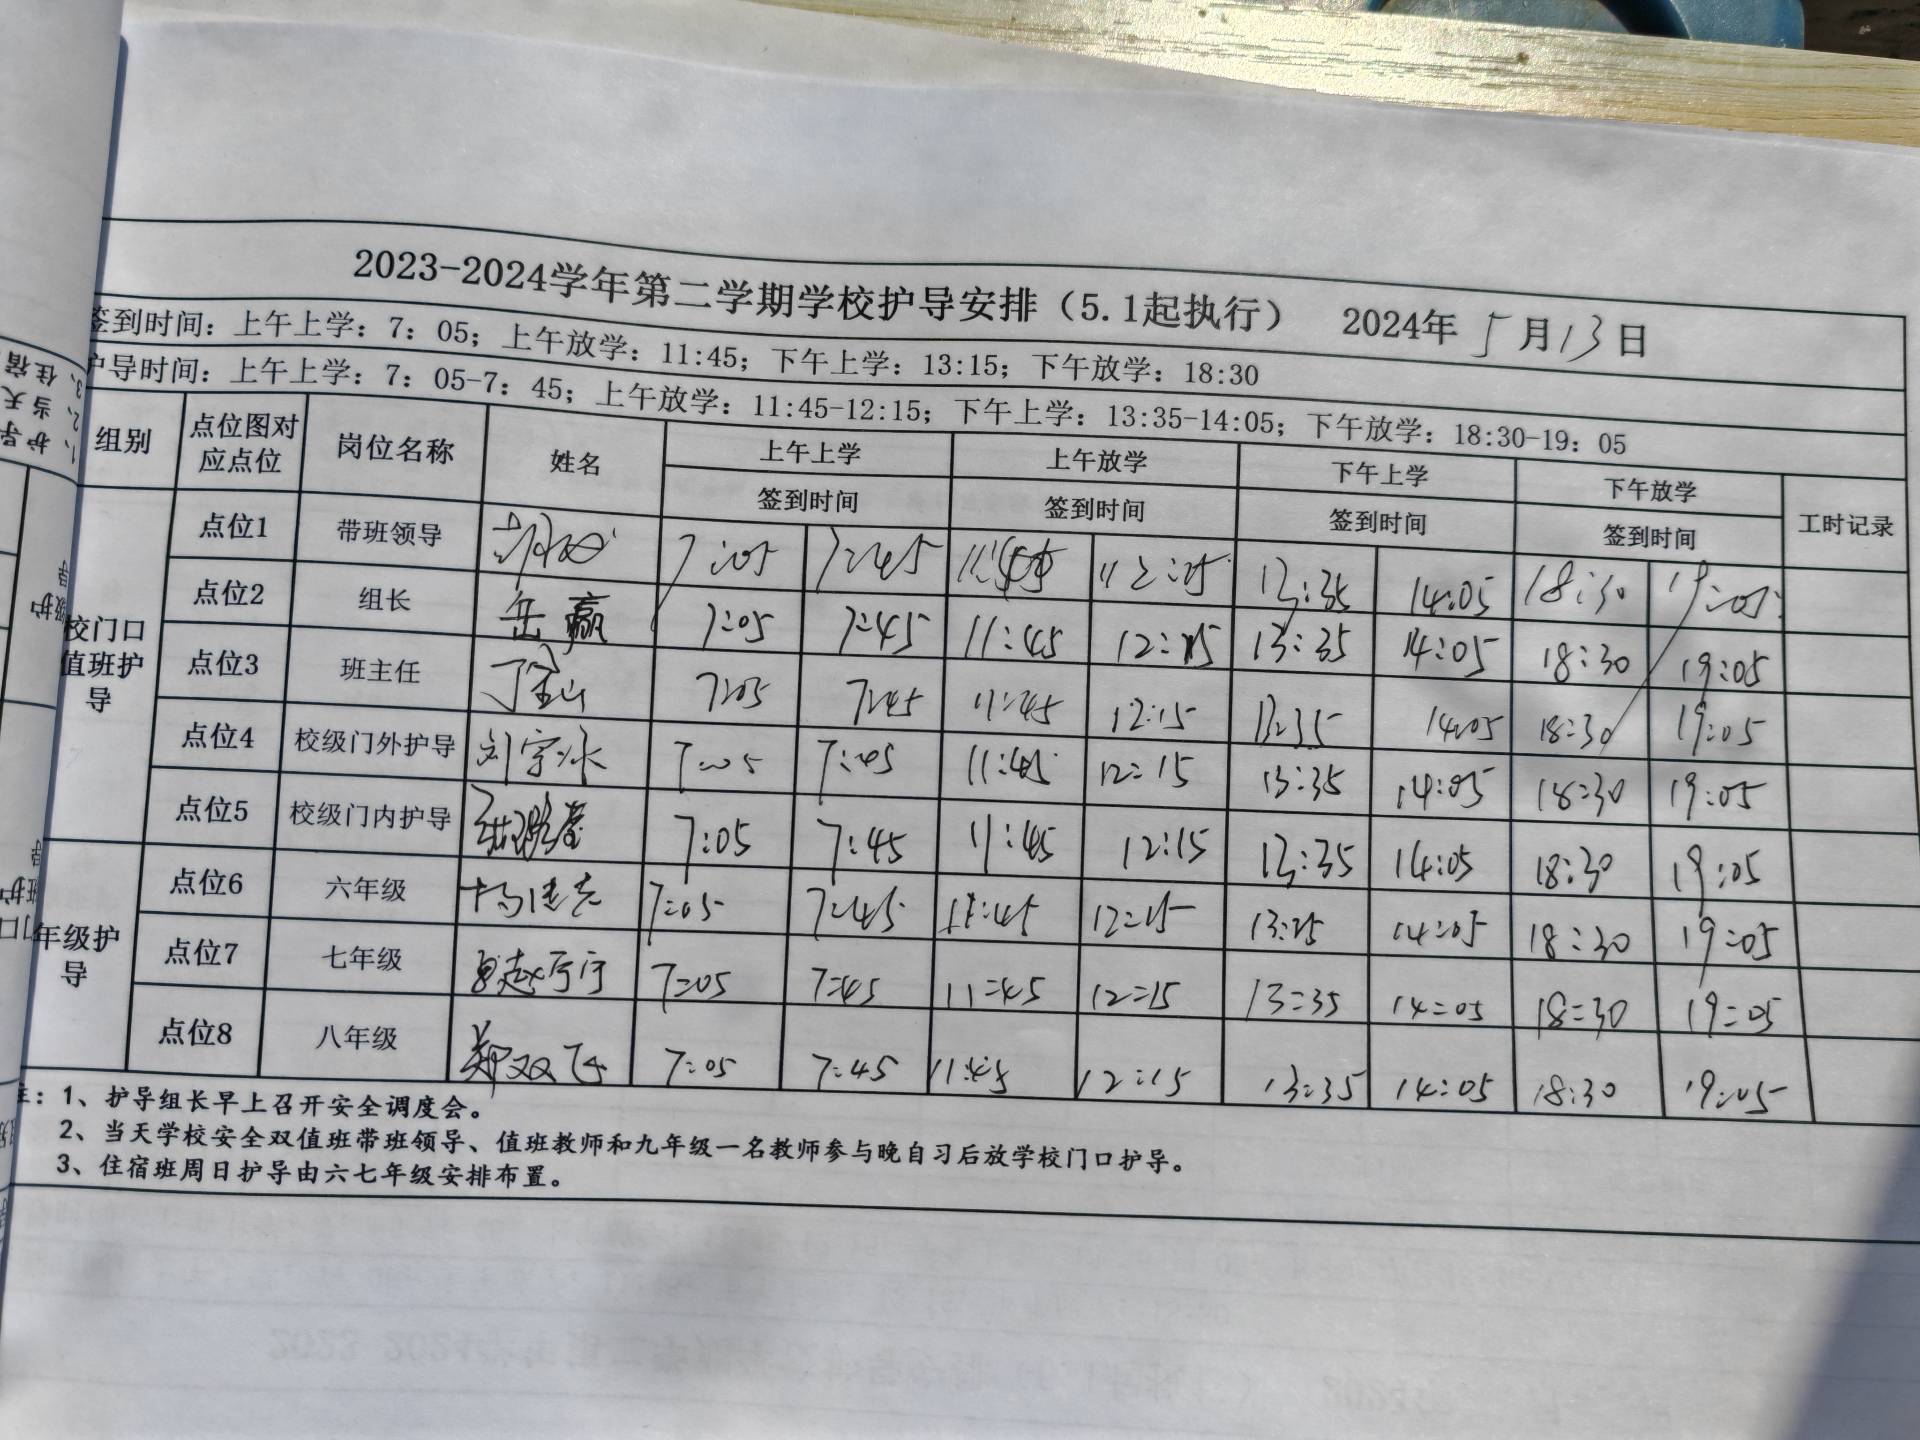 2023-2024学年第二学期学校护导安排（5.1起执行） 2024年 5 月 13 日
签到时间：上午上学：7：05；上午放学：11:45；下午上学：13:15；下午放学：18:30
护导时间：上午上学：7：05-7：45；上午放学：11:45-12:15；下午上学：13:35-14:05；下午放学：18:30-19：05
组别 点位图对应点位 岗位名称 姓名 上午上学 上午放学 下午上学 下午放学 工时记录
签到时间 签到时间 签到时间 签到时间
校门口值班护导
点位1 带班领导 7:05 7:45 12:15 13:35 14:05 18:30 19:05
点位2 组长 岳赢 7:05 7:45 11:45 12:15 13:35 14:05 18:30 19:05
点位3 班主任 丁金山 7:05 7:45 11:45 12:15 13:35 14:05 18:30 19:05
点位4 校级门外护导 刘宇冰 7:05 7:45 11:45 12:15 13:35 14:05 18:30 19:05
点位5 校级门内护导 7:05 7:45 11:45 12:15 13:35 14:05 18:30 19:05
年级护导
点位6 六年级 7:05 7:45 11:45 12:15 14:05 18:30 19:05
点位7 七年级 7:05 7:45 11:45 12:15 13:35 14:05 18:30 19:05
点位8 八年级 郑双飞 7:05 7:45 11:45 12:15 13:35 14:05 18:30 19:05
注：1、护导组长早上召开安全调度会。
2、当天学校安全双值班带班领导、值班教师和九年级一名教师参与晚自习后放学校门口护导。
3、住宿班周日护导由六七年级安排布置。